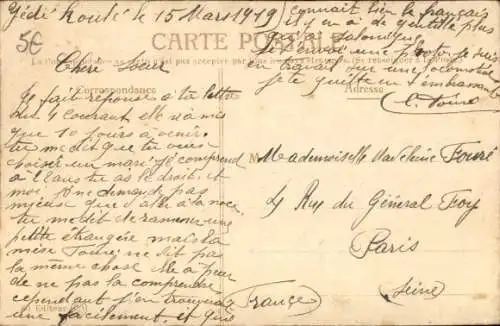 Dédé Kouté le 15 Mars 1919
5€
CARTE POSTALE
Chère Soeur
Correspondance
Adresse
Je fait réponse à ta lettre
du 4 Courant elle n'a mis
que 10 jours à venir.
tu me dit que tu veux
choisir un mari je comprend
à l'âge tu as le droit, et
moi je ne demande pas
mieux que d'aller à la noce
tu me dit de ramener une
petite étrangère mais la
mise Touré ne dit pas
la même chose elle a peur
de ne pas la comprendre
cependant j'en trouverais
une facilement, et qui
connait bien le français
il y en a de gentille plus
qu'à Salonique
Je t'envoi une photo je suis
en travail sur une locomotive
je te quitte en t'embrassant
L. Fouré
Mademoiselle Madeleine Fouré
4 Rue du Général Foy
Paris
Seine
France